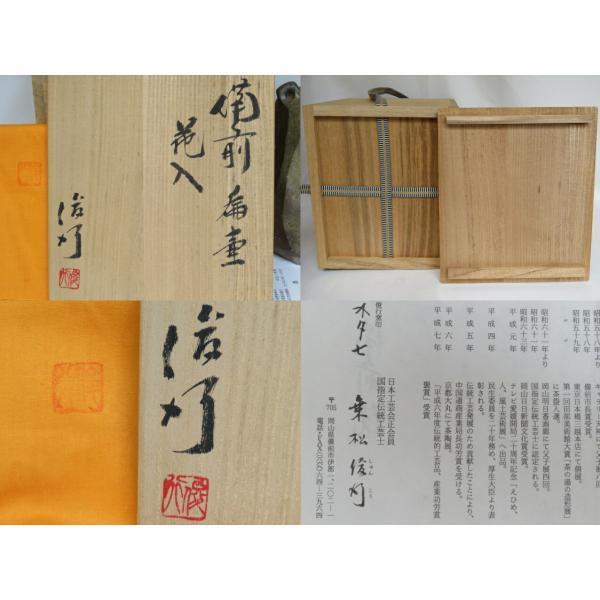 備前 扁壺
花入
俊行
俊行
俊行
昭和五十八年
昭和五十九年
昭和六十一年より
昭和六十一年
昭和六十三年
平成元年
平成四年
平成五年
平成六年
平成七年
備前市長賞受賞。
東京日本橋三越本店にて個展。
第一回田部美術館大賞「茶の湯の造形展」
に茶盌入選。
岡山明日香画廊にて父子展四回。
国指定伝統工芸士に認定される。
岡山日日新聞文化賞受賞。
テレビ愛媛開局二十周年記念「えひめ、
人、風土芸術展」へ出品。
民生委員を二十年務め、厚生大臣より表
彰される。
伝統工芸発展のため貢献したことにより、
中国通商産業局長功労賞を受ける。
京都大丸にて茶陶展。
「平成六年度伝統的工芸品、産業功労賞
褒賞」受賞
日本工芸会正会員
国指定伝統工芸士
乗松俊行
しゅん こう
〒705
岡山県備前市伊部一、二〇二-一